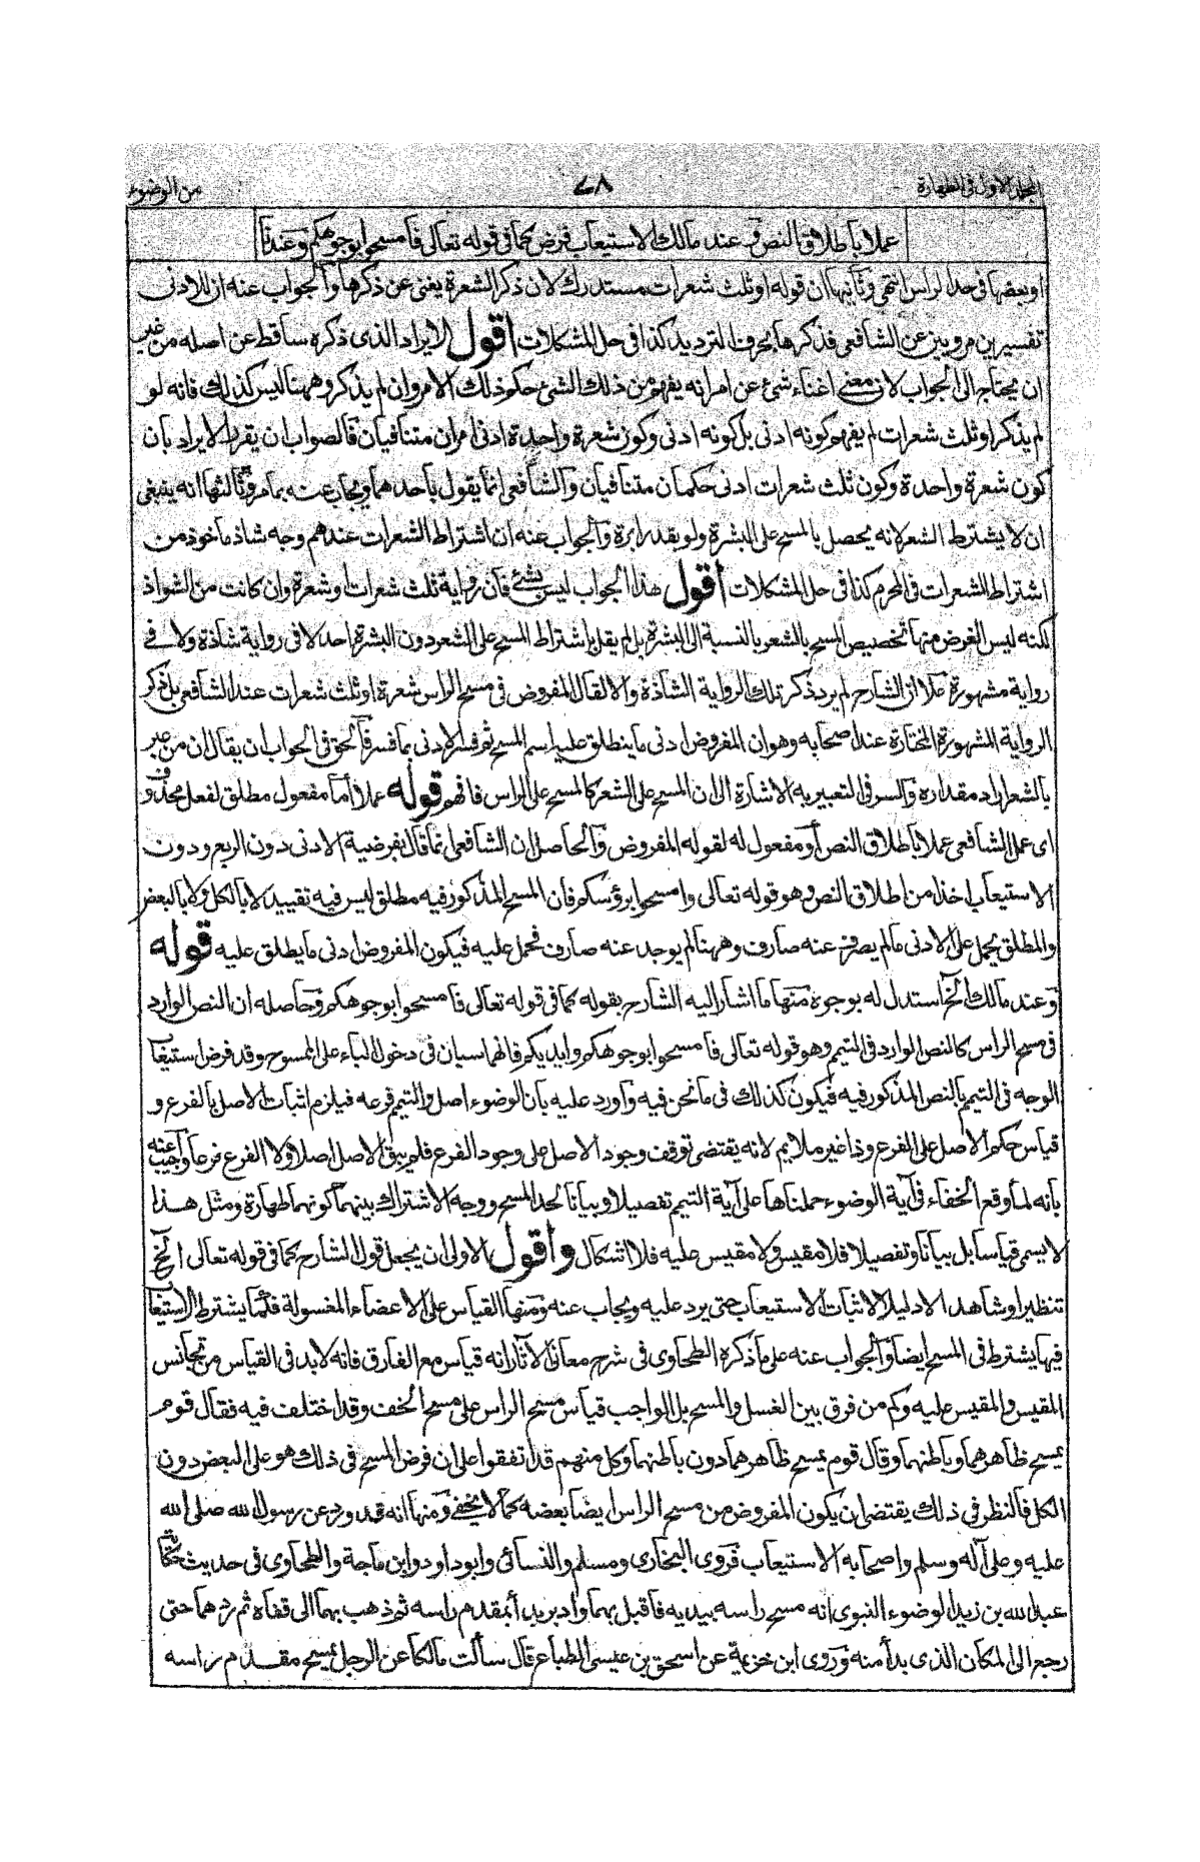 المجلد الاول فى الطهارة ٧٨ من الوضوء
عملا باطلاق النص و عند مالك الاستيعاب فرض كما فى قوله تعالى فامسحوا بوجوهكم وعندنا
او بعضها فى حد الراس انتهى وثانيها ان قوله او ثلث شعرات مستدرك لان ذكر الشعرة يغنى عن ذكرها والجواب عنه ان للادنى
تفسيرين مرويين عن الشافعى فذكرها بحرف الترديد كذا فى حل المشكلات اقول الايراد الذى ذكره ساقط عن اصله من غير
ان يحتاج الى الجواب لان معنى اغناء شئ عن امر انه يفهم من ذلك الشئ حكم ذلك الامر وان لم يذكر وههنا ليس كذلك فانه لو
لم يذكر او ثلث شعرات لم يفهم كونه ادنى بل كونه ادنى وكون شعرة واحدة ادنى امران متنافيان فالصواب ان يقرر الايراد بان
كون شعرة واحدة وكون ثلث شعرات ادنى حكمان متنافيان والشافعى انما يقول باحدهما ويجاب عنه بما مر وثالثها انه ينبغى
ان لا يشترط الشعر لانه يحصل بالمسح على البشرة ولو بقدر ابرة والجواب عنه ان اشتراط الشعرات عندهم وجه شاذ ماخوذ من
اشتراط الشعرات فى المحرم كذا فى حل المشكلات اقول هذا الجواب ليس بشئ فان رواية ثلث شعرات او شعرة وان كانت من الشواذ
لكنه ليس الغرض منها تخصيص المسح بالشعر بالنسبة الى البشرة بل لم يقل باشتراط المسح على الشعر دون البشرة احد لا فى رواية شاذة ولا فى
رواية مشهورة علا ان الشارح لم يرد ذكر تلك الرواية الشاذة والا لقال المفروض فى مسح الراس شعرة او ثلث شعرات عند الشافعى بل ذكر
الرواية المشهورة المختارة عند اصحابه وهو ان المفروض ادنى ما ينطلق عليه اسم المسح ثم فسر الادنى بما فسر فالحق فى الجواب ان يقال ان من عبر
بالشعر اراد مقداره والسر فى التعبير به الاشارة الى ان المسح على الشعر كالمسح على الراس فافهم قوله عملا اما مفعول مطلق لفعل محذوف
اى عمل الشافعى عملا باطلاق النص او مفعول له لقوله المفروض والحاصل ان الشافعى انما قال بفرضية الادنى دون الربع ودون
الاستيعاب اخذا من اطلاق النص وهو قوله تعالى وامسحوا برؤسكم فان المسح المذكور فيه مطلق ليس فيه تقييد لا بالكل ولا بالبعض
والمطلق يحمل على الادنى ما لم يصرف عنه صارف وههنا لم يوجد عنه صارف فحمل عليه فيكون المفروض ادنى ما يطلق عليه قوله
وعند مالك الخ استدل له بوجوه منها ما اشار اليه الشارح بقوله كما فى قوله تعالى فامسحوا بوجوهكم وحاصله ان النص الوارد
فى مسح الراس كالنص الوارد فى التيمم وهو قوله تعالى فامسحوا بوجوهكم وايديكم فانهما سيان فى دخول الباء على الممسوح وقد فرض استيعاب
الوجه فى التيمم بالنص المذكور فيه فيكون كذلك فى ما نحن فيه واورد عليه بان الوضوء اصل والتيمم فرعه فيلزم اثبات الاصل بالفرع و
قياس حكم الاصل على الفرع وذا غير ملايم لانه يقتضى توقف وجود الاصل على وجود الفرع فلم يبق الاصل اصلا ولا الفرع فرعا واجيب عنه
بانه لما وقع الخفاء فى آية الوضوء حملناها على آية التيمم تفصيلا وبيانا لحد المسح ووجه الاشتراك بينهما كونهما طهارة ومثل هذا
لا يسمى قياسا بل بيانا وتفصيلا فلا مقيس ولا مقيس عليه فلا اشكال واقول الاولى ان يجعل قول الشارح كما فى قوله تعالى الخ
تنظيرا وشاهدا لا دليلا لاثبات الاستيعاب حتى يرد عليه ويجاب عنه ومنها القياس على الاعضاء المغسولة فلما يشترط الاستيعاب
فيها يشترط فى المسح ايضا والجواب عنه على ما ذكره الطحاوى فى شرح معانى الآثار انه قياس مع الفارق فانه لا بد فى القياس من تجانس
المقيس والمقيس عليه وكم من فرق بين الغسل والمسح بل الواجب قياس مسح الراس على مسح الخف وقد اختلف فيه فقال قوم
يمسح ظاهرهما وباطنهما وقال قوم يمسح ظاهرهما دون باطنهما وكل منهم قد اتفقوا على ان فرض المسح فى ذلك هو على البعض دون
الكل فالنظر فى ذلك يقتضى ان يكون المفروض من مسح الراس ايضا بعضه كما لا يخفى ومنها انه قد ورد عن رسول الله صلى الله
عليه وعلى آله وسلم واصحابه الاستيعاب فروى البخارى ومسلم والنسائى وابو داود وابن ماجة والطحاوى فى حديث حكاية
عبد الله بن زيد الوضوء النبوى انه مسح راسه بيديه فاقبل بهما وادبر بدأ بمقدم راسه ثم ذهب بهما الى قفاه ثم ردهما حتى
رجع الى المكان الذى بدأ منه وروى ابن خزيمة عن اسحق بن عيسى الطباع قال سألت مالكا عن الرجل يمسح مقدم راسه